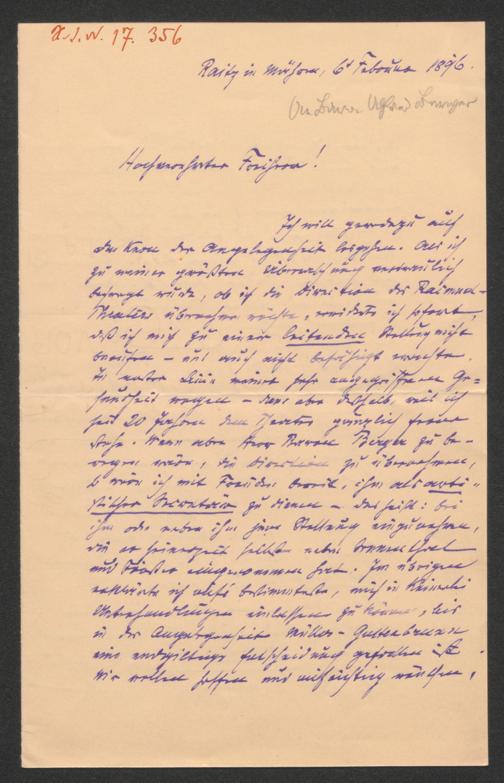 I. N. 17. 356
Raitz in Mähren, 6t Februar 1896.
An Baron Alfred Berger
Hochverehrter Freiherr!
Ich will geradezu auf
den Kern der Angelegenheit losgehen. Als ich
zu meiner größten Überraschung vertraulich
befragt wurde, ob ich die Direction des Raimund-
Theaters übernehmen würde, erwiderte ich sofort,
daß ich mich zu einer leitenden Stellung nicht
berufen – und auch nicht befähigt erachte.
In erster Linie meiner sehr angegriffenen Ge-
sundheit wegen – dann aber deshalb, weil ich
seit 20 Jahren dem Theater gänzlich ferne
stehe. Wenn aber Herr Baron Berger zu be-
wegen wäre, die Direction zu übernehmen,
so wäre ich mit Freuden bereit, ihm als arti-
stischer Secretär zu dienen – das heißt: bei
ihm oder neben ihm jene Stellung einzunehmen,
die er seinerzeit selbst neben
und Förster eingenommen hat. Im übrigen
erklärte ich aufs bestimmteste, mich in keinerlei
Unterhandlungen einlassen zu können, bis
in der Angelegenheit Müller-Guttenbrunn
eine endgiltige Entscheidung gefallen ist.
Wir wollen hoffen und aufrichtig wünschen,